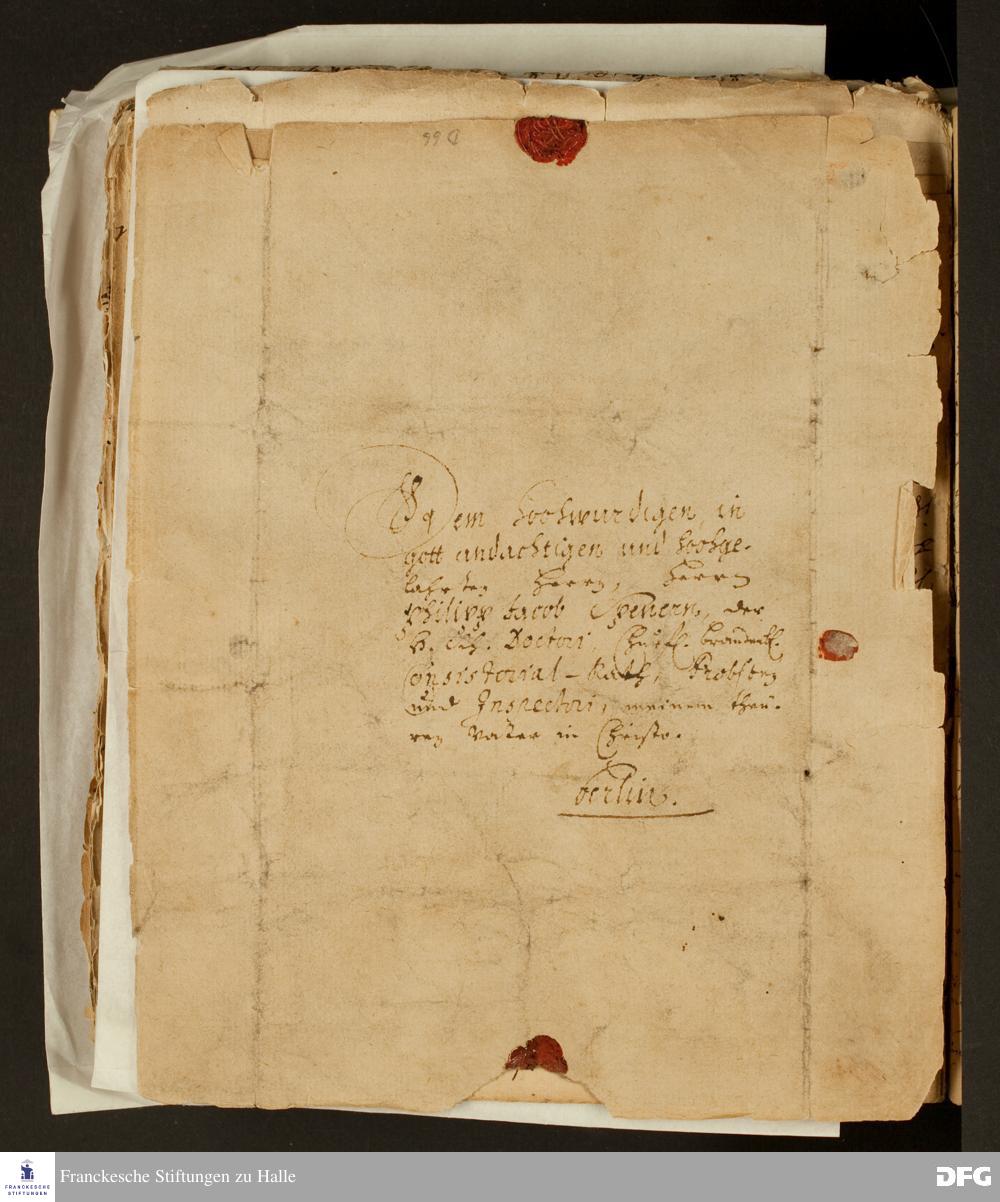 D 66
Dem hochwurdigen, in
gott andachtigen und hochge-
lahrten Herrn, Herrn
Philipp Jacob Spenern, der
H. Sch. Doctori, Churfl. brandenb.
Consistorial-Rath, Probsten
und Inspectori, meinem theu-
ren Vater in Christo.
berlin.
FRANCKESCHE
STIFTUNGEN
Franckesche Stiftungen zu Halle
DFG